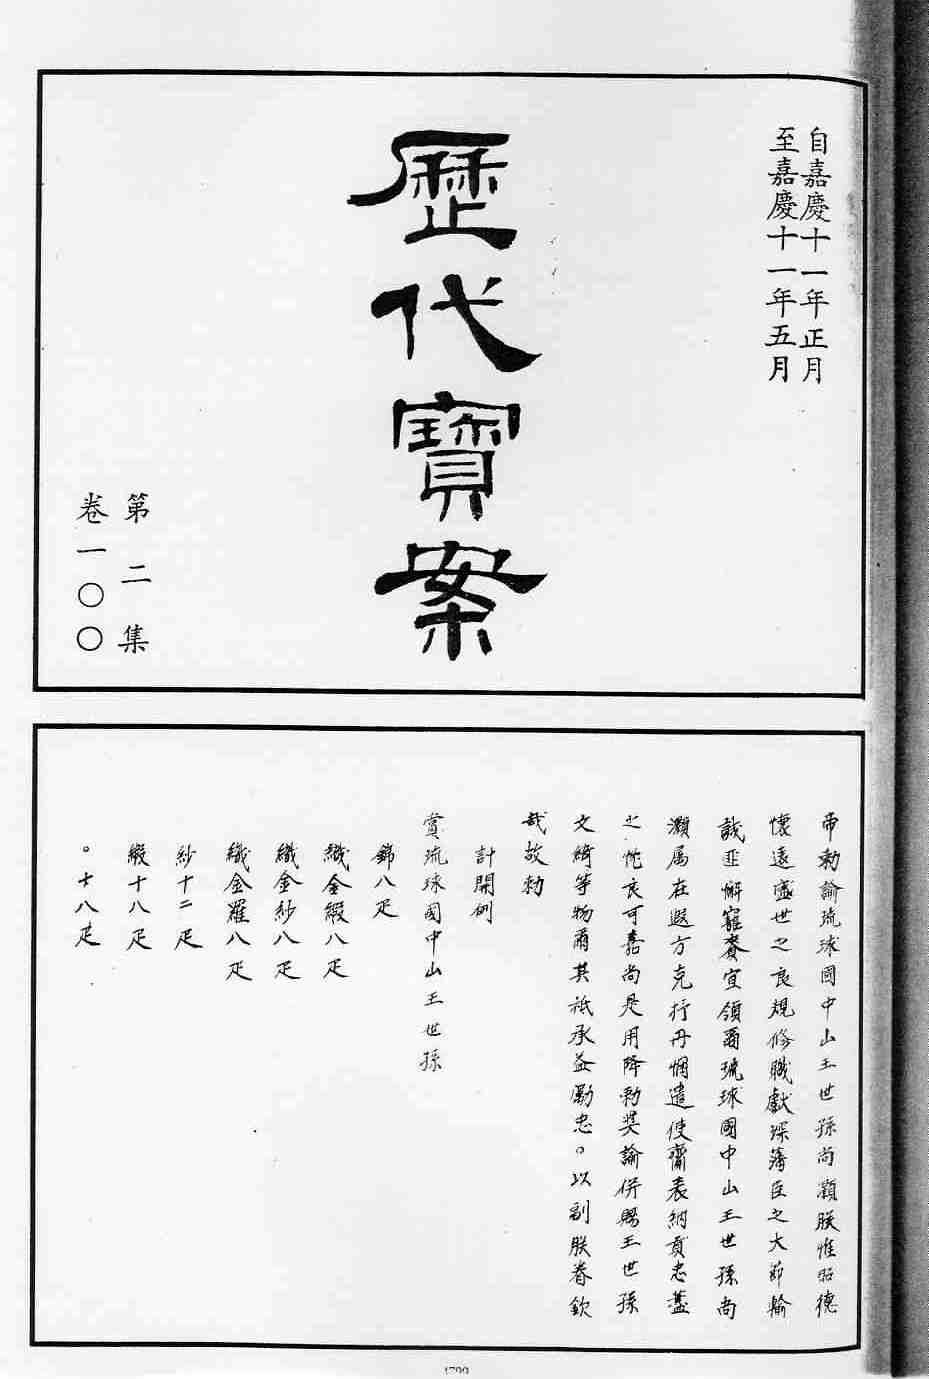 自嘉慶十一年正月
至嘉慶十一年五月
歷代寶案
第二集
卷一〇〇
帝勅諭琉球國中山王世孫尚灝朕惟昭德
懷遠盛世之良規修職獻琛藩臣之大節輸
誠匪懈寵賚宜頒爾琉球國中山王世孫尚
灝属在遐方克抒丹悃遣使齎表納貢忠藎
之忱良可嘉尚是用降勅奨諭併賜王世孫
文綺等物爾其祗承益勵忠。以副朕眷欽
哉故勅
計開例
賞琉球國中山王世孫
錦八疋
織金緞八疋
織金紗八疋
織金羅八疋
紗十二疋
緞十八疋
。十八疋